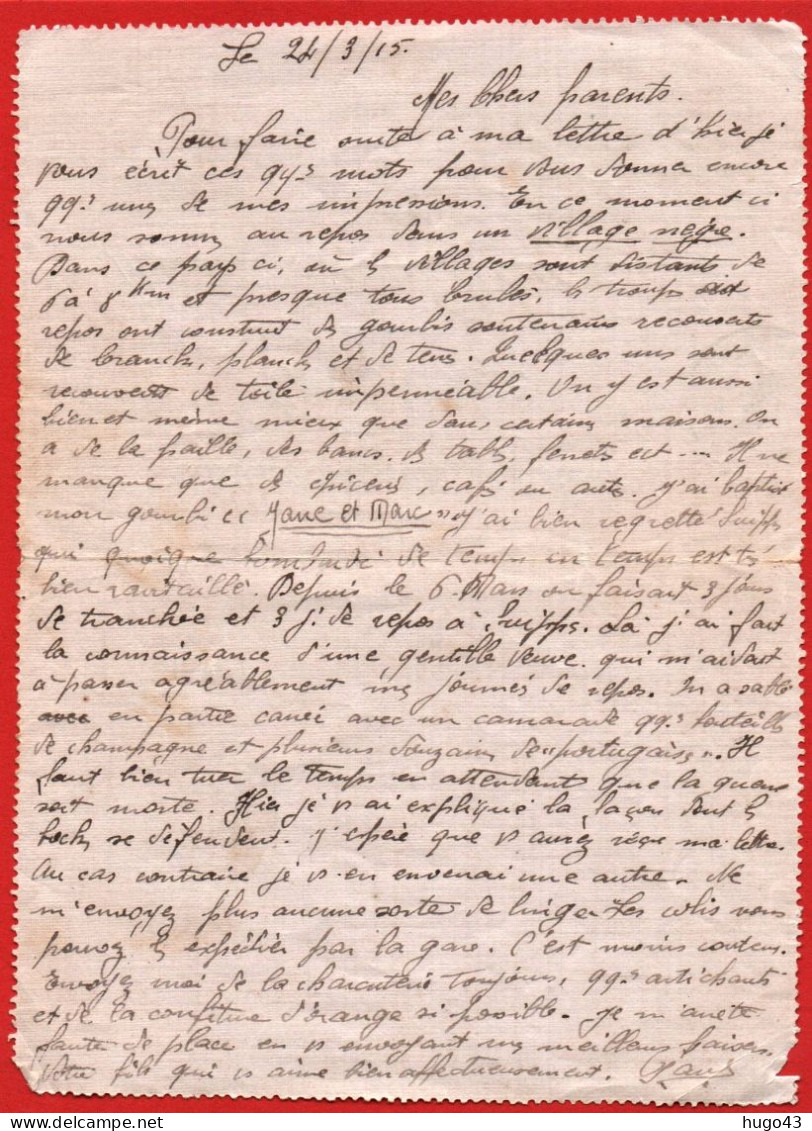 Le 24/3/15.
Mes Chers parents.
Pour faire suite à ma lettre d'hier je
vous écrit ces qq.s mots pour vous donner encore
qq.s unes de mes impressions. En ce moment ci
nous somms au repos dans un village nègre.
Dans ce pays ci, où ls villages sont distants de
6 à 8 Km et presque tous brulés, ls troups
repos ont construit ds gourbis souterrains recouverts
de branchs, planchs et de terre. Quelques uns sont
recouverts de toile imperméable. On y est aussi
bien et même mieux que dans certains maisons. On
a de la paille, des bancs, ds tabls, fenêts ect... Il ne
manque que ds épiceris, cafés ou auts. J'ai baptisé
mon gourbi "Jane et Marc" J'ai bien regretté Suipps
qui quoique bombardé de temps en temps est tès
bien ravitaillé. Depuis le 6 Mars on faisait 3 jours
de tranchée et 3 j. de repos à Suipps. Là j'ai fait
la connaissance d'une gentille veuve qui m'aidait
à passer agréablement ms journés de repos. On a sablé
avec en partie carrée avec un camarade qq.s bouteills
de champagne et plusieurs douzains de "portugaiss". Il
faut bien tuer le temps en attendant que la guerre
soit morte. Hier je vs ai expliqué la façon dont ls
boches se défendent. J'espère que vs aurez reçue ma lettre.
Au cas contraire je vs en enverrai une autre. Ne
m'envoyez plus aucune sorte de linge. Les colis vous
pouvez ls expédier par la gare. C'est moins couteux.
Envoyez moi de la charcuterie toujours, qq.s artichauts
et de la confiture d'orange si possible. Je m'arrête
faute de place en vs envoyant ms meilleurs baisers.
Votre fils qui vs aime bien affectueusement.
hugo43